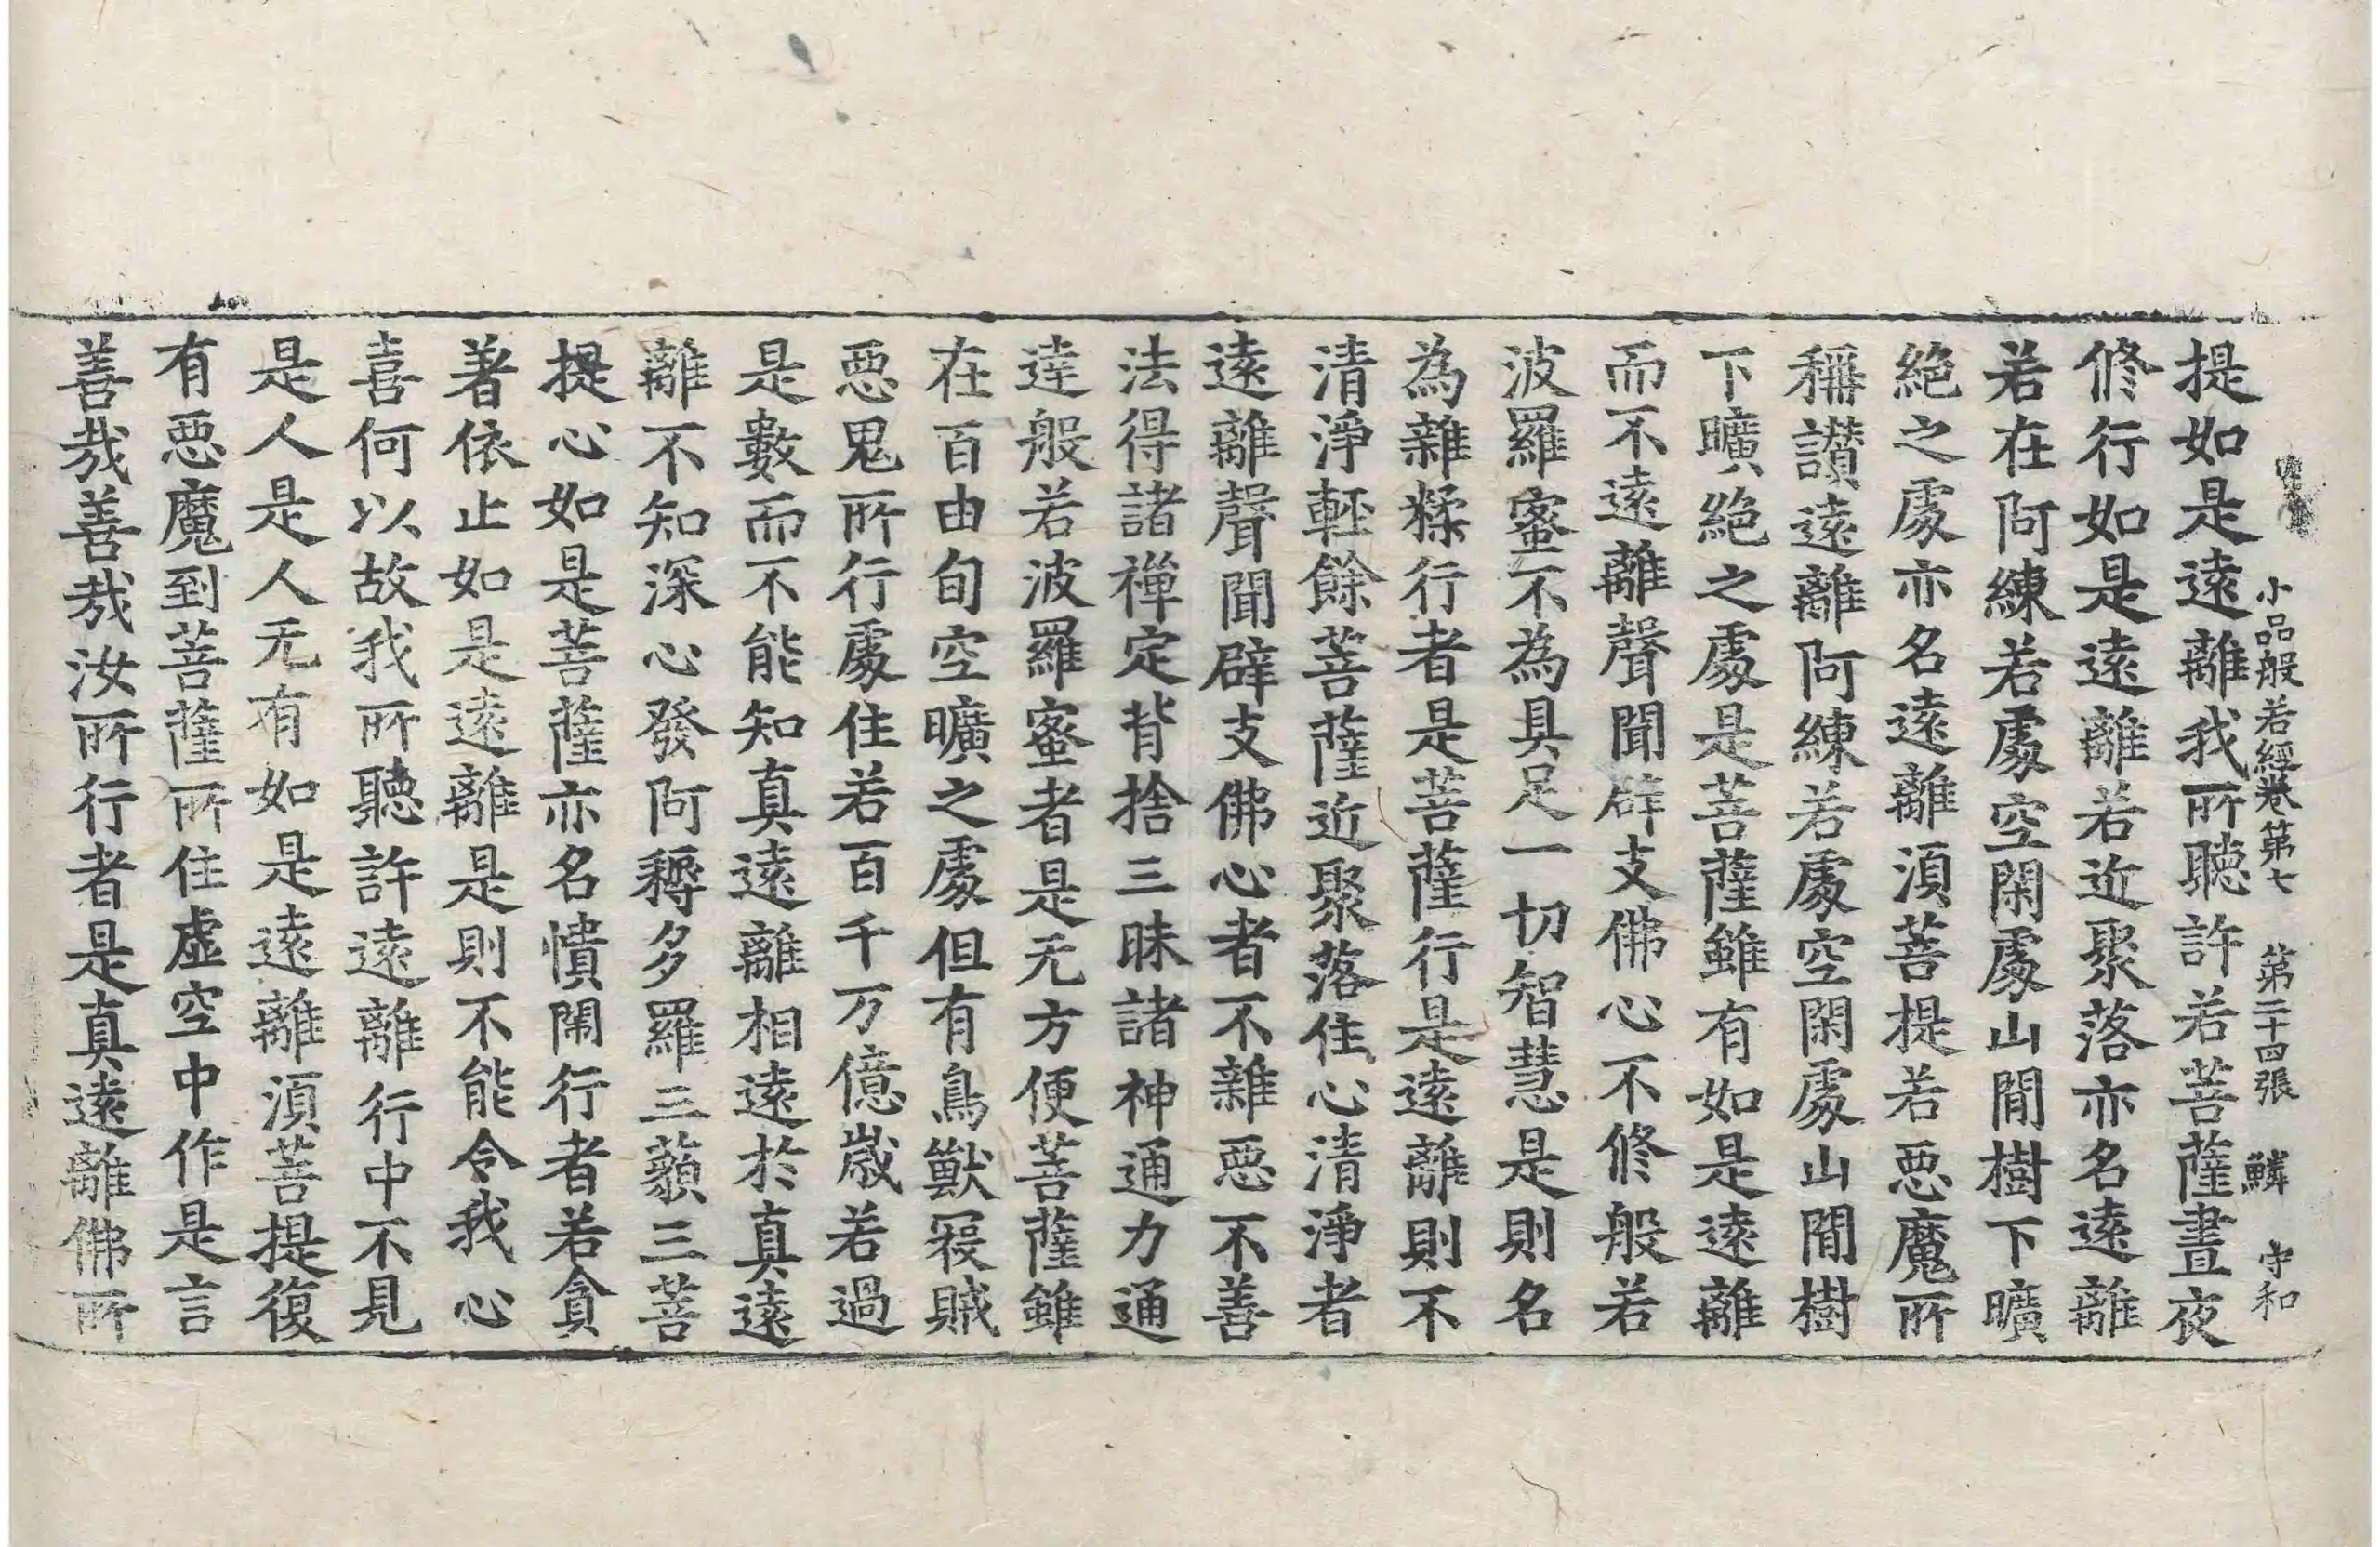 小品般若經卷第七 第二十四張 鱗 守和
提如是遠離我所聽許若菩薩晝夜
修行如是遠離若近聚落亦名遠離
若在阿練若處空閑處山間樹下曠
絶之處亦名遠離須菩提若惡魔所
稱讃遠離阿練若處空閑處山間樹
下曠絶之處是菩薩雖有如是遠離
而不遠離聲聞辟支佛心不修般若
波羅蜜不為具足一切智慧是則名
為雜糅行者是菩薩行是遠離則不
清淨輕餘菩薩近聚落住心清淨者
遠離聲聞辟支佛心者不雜惡不善
法得諸禪定背捨三昧諸神通力通
達般若波羅蜜者是无方便菩薩雖
在百由旬空曠之處但有鳥獸冦賊
惡鬼所行處住若百千万億歲若過
是數而不能知真遠離相遠於真遠
離不知深心發阿耨多羅三藐三菩
提心如是菩薩亦名憒閙行者若貪
著依止如是遠離是則不能令我心
喜何以故我所聽許遠離行中不見
是人是人无有如是遠離須菩提復
有惡魔到菩薩所住虛空中作是言
善哉善哉汝所行者是真遠離佛所